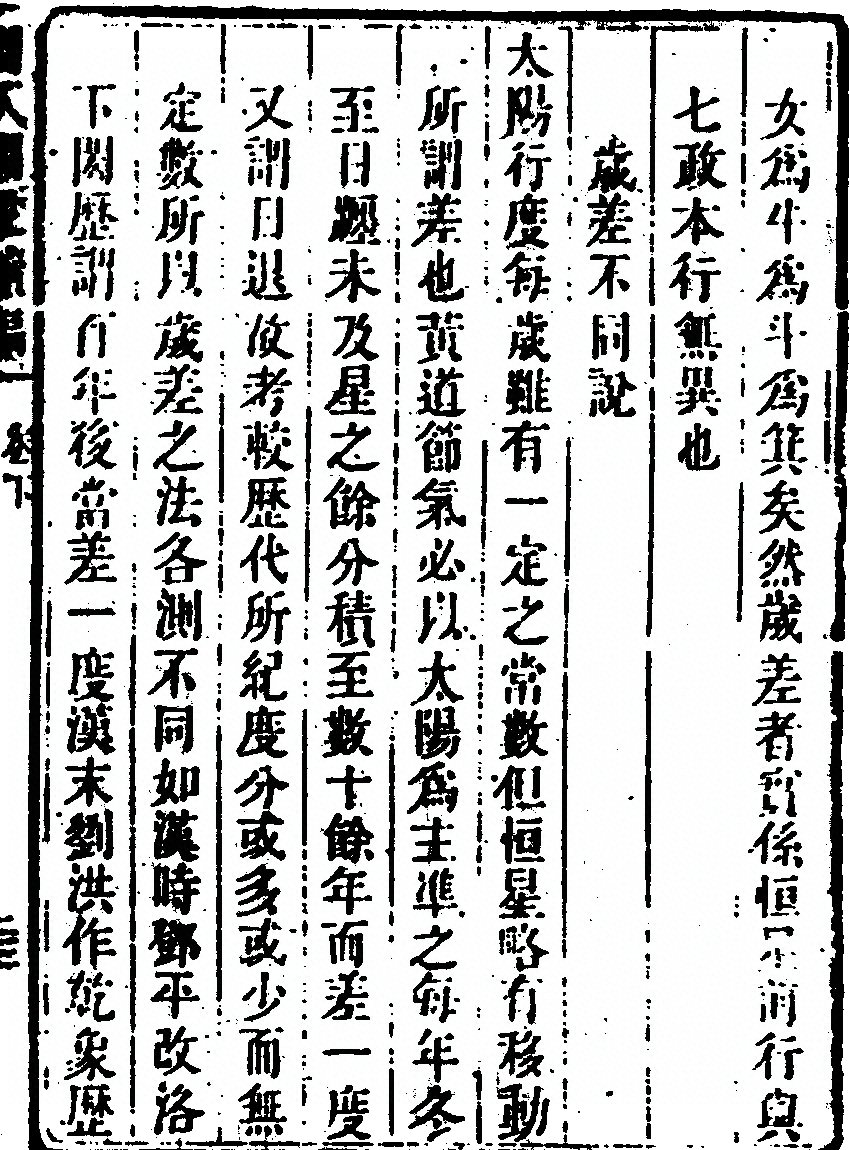 女為牛為斗為箕矣然歲差者實係恒星前行與
七政本行無異也
歲差不同說
太陽行度每歲雖有一定之常數但恒星略有移動
所謂差也黃道節氣必以太陽為主準之每年冬
至日躔未及星之餘分積至數十餘年而差一度
又謂日退度考較歷代所紀度分或多或少而無
定數所以歲差之法各測不同如漢時鄧平改洛
下閎歷謂百年後當差一度漢末劉洪作乾象歷
卷下